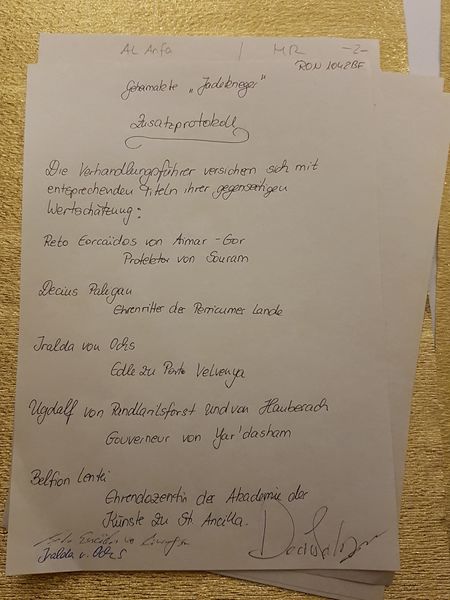 AL Anfa / MR -2-
RON 1042BF
Geheimakte "Jadekrieger"
Zusatzprotokoll
Die Verhandlungsführer versichern sich mit
entsprechenden Titeln ihrer gegenseitigen
Wertschätzung:
Reto Eorcaïdos von Aimar-Gor
Protektor von Souram
Decius Paligan
Ehrenritter der Perricumer Lande
Iralda von Ochs
Edle zu Porto Velvenya
Ugdalf von Pandlarilsforst und von Hauberach
Gouverneur von Yar'dasham
Belfion Lenti
Ehrendozentin der Akademie der
Künste zu St. Ancilla.
Iralda v. Ochs